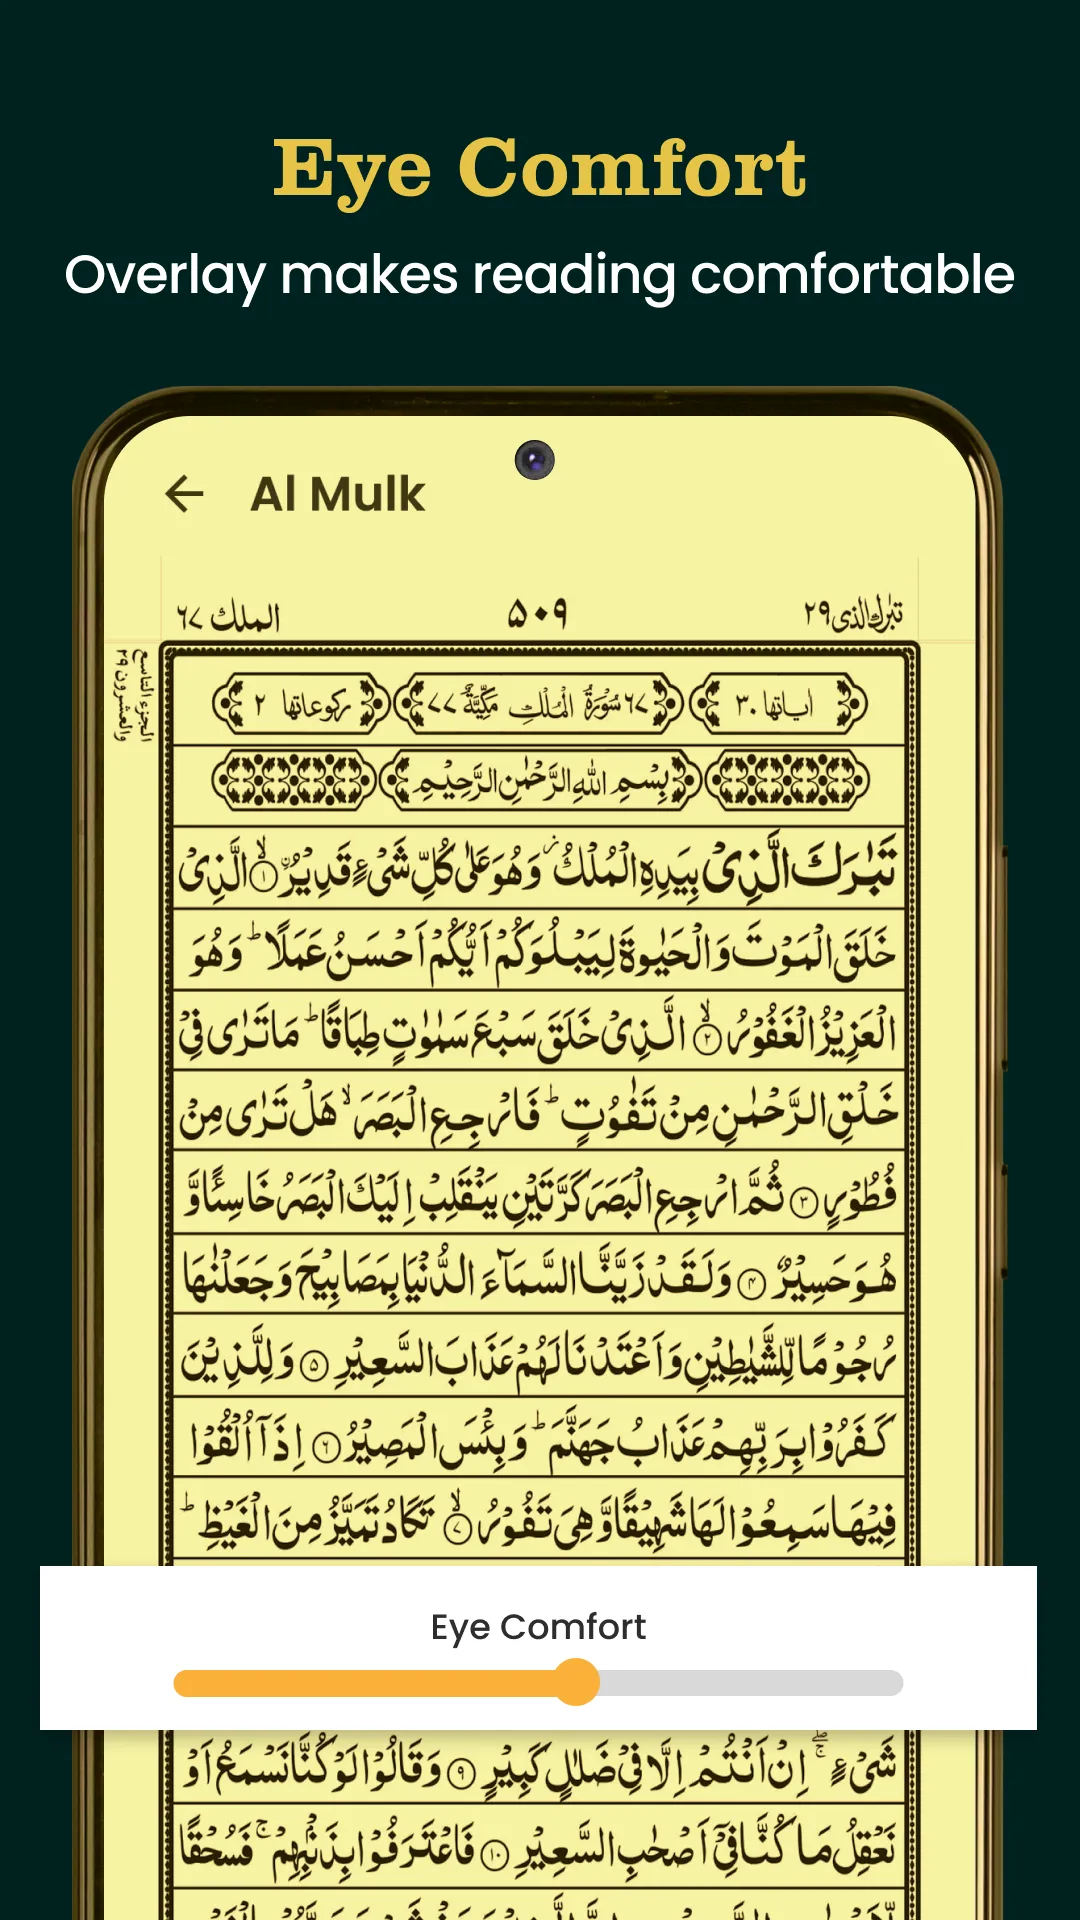 Eye Comfort
Overlay makes reading comfortable
Al Mulk
تبٰرك الذی ۲۹
۵۰۹
الملك ٦٧
الجزء التاسع
والعشرون ۲۹
اٰیاتها ۳۰
٦٧ سُوْرَةُ الْمُلْكِ مَكِّیَّةٌ ٧٧
رکوعاتها ۲
بِسْمِ اللهِ الرَّحْمٰنِ الرَّحِیْمِ
تَبٰرَكَ الَّذِیْ بِیَدِهِ الْمُلْكُ ز وَهُوَ عَلٰی كُلِّ شَیْءٍ قَدِیْرُ ۙ﴿۱﴾ الَّذِیْ
خَلَقَ الْمَوْتَ وَالْحَیٰوةَ لِیَبْلُوَكُمْ اَیُّكُمْ اَحْسَنُ عَمَلًا ؕ وَهُوَ
الْعَزِیْزُ الْغَفُوْرُ ۙ﴿۲﴾ الَّذِیْ خَلَقَ سَبْعَ سَمٰوٰتٍ طِبَاقًا ؕ مَا تَرٰی فِیْ
خَلْقِ الرَّحْمٰنِ مِنْ تَفٰوُتٍ ؕ فَارْجِعِ الْبَصَرَ ۙ هَلْ تَرٰی مِنْ
فُطُوْرٍ ﴿۳﴾ ثُمَّ ارْجِعِ الْبَصَرَ كَرَّتَیْنِ یَنْقَلِبْ اِلَیْكَ الْبَصَرُ خَاسِئًا وَّ
هُوَ حَسِیْرٌ ﴿۴﴾ وَلَقَدْ زَیَّنَّا السَّمَآءَ الدُّنْیَا بِمَصَابِیْحَ وَجَعَلْنٰهَا
رُجُوْمًا لِّلشَّیٰطِیْنِ وَاَعْتَدْنَا لَهُمْ عَذَابَ السَّعِیْرِ ﴿۵﴾ وَلِلَّذِیْنَ
كَفَرُوْا بِرَبِّهِمْ عَذَابُ جَهَنَّمَ ؕ وَبِئْسَ الْمَصِیْرُ ﴿٦﴾ اِذَاۤ اُلْقُوْا
فِیْهَا سَمِعُوْا لَهَا شَهِیْقًا وَّهِیَ تَفُوْرُ ۙ﴿٧﴾ تَكَادُ تَمَیَّزُ مِنَ الْغَیْظِ ؕ
Eye Comfort
شَیْءٍ ۖۚ اِنْ اَنْتُمْ اِلَّا فِیْ ضَلٰلٍ كَبِیْرٍ ﴿۹﴾ وَقَالُوْا لَوْ كُنَّا نَسْمَعُ اَوْ
نَعْقِلُ مَا كُنَّا فِیْۤ اَصْحٰبِ السَّعِیْرِ ﴿۱۰﴾ فَاعْتَرَفُوْا بِذَنْۢبِهِمْ ۚ فَسُحْقًا